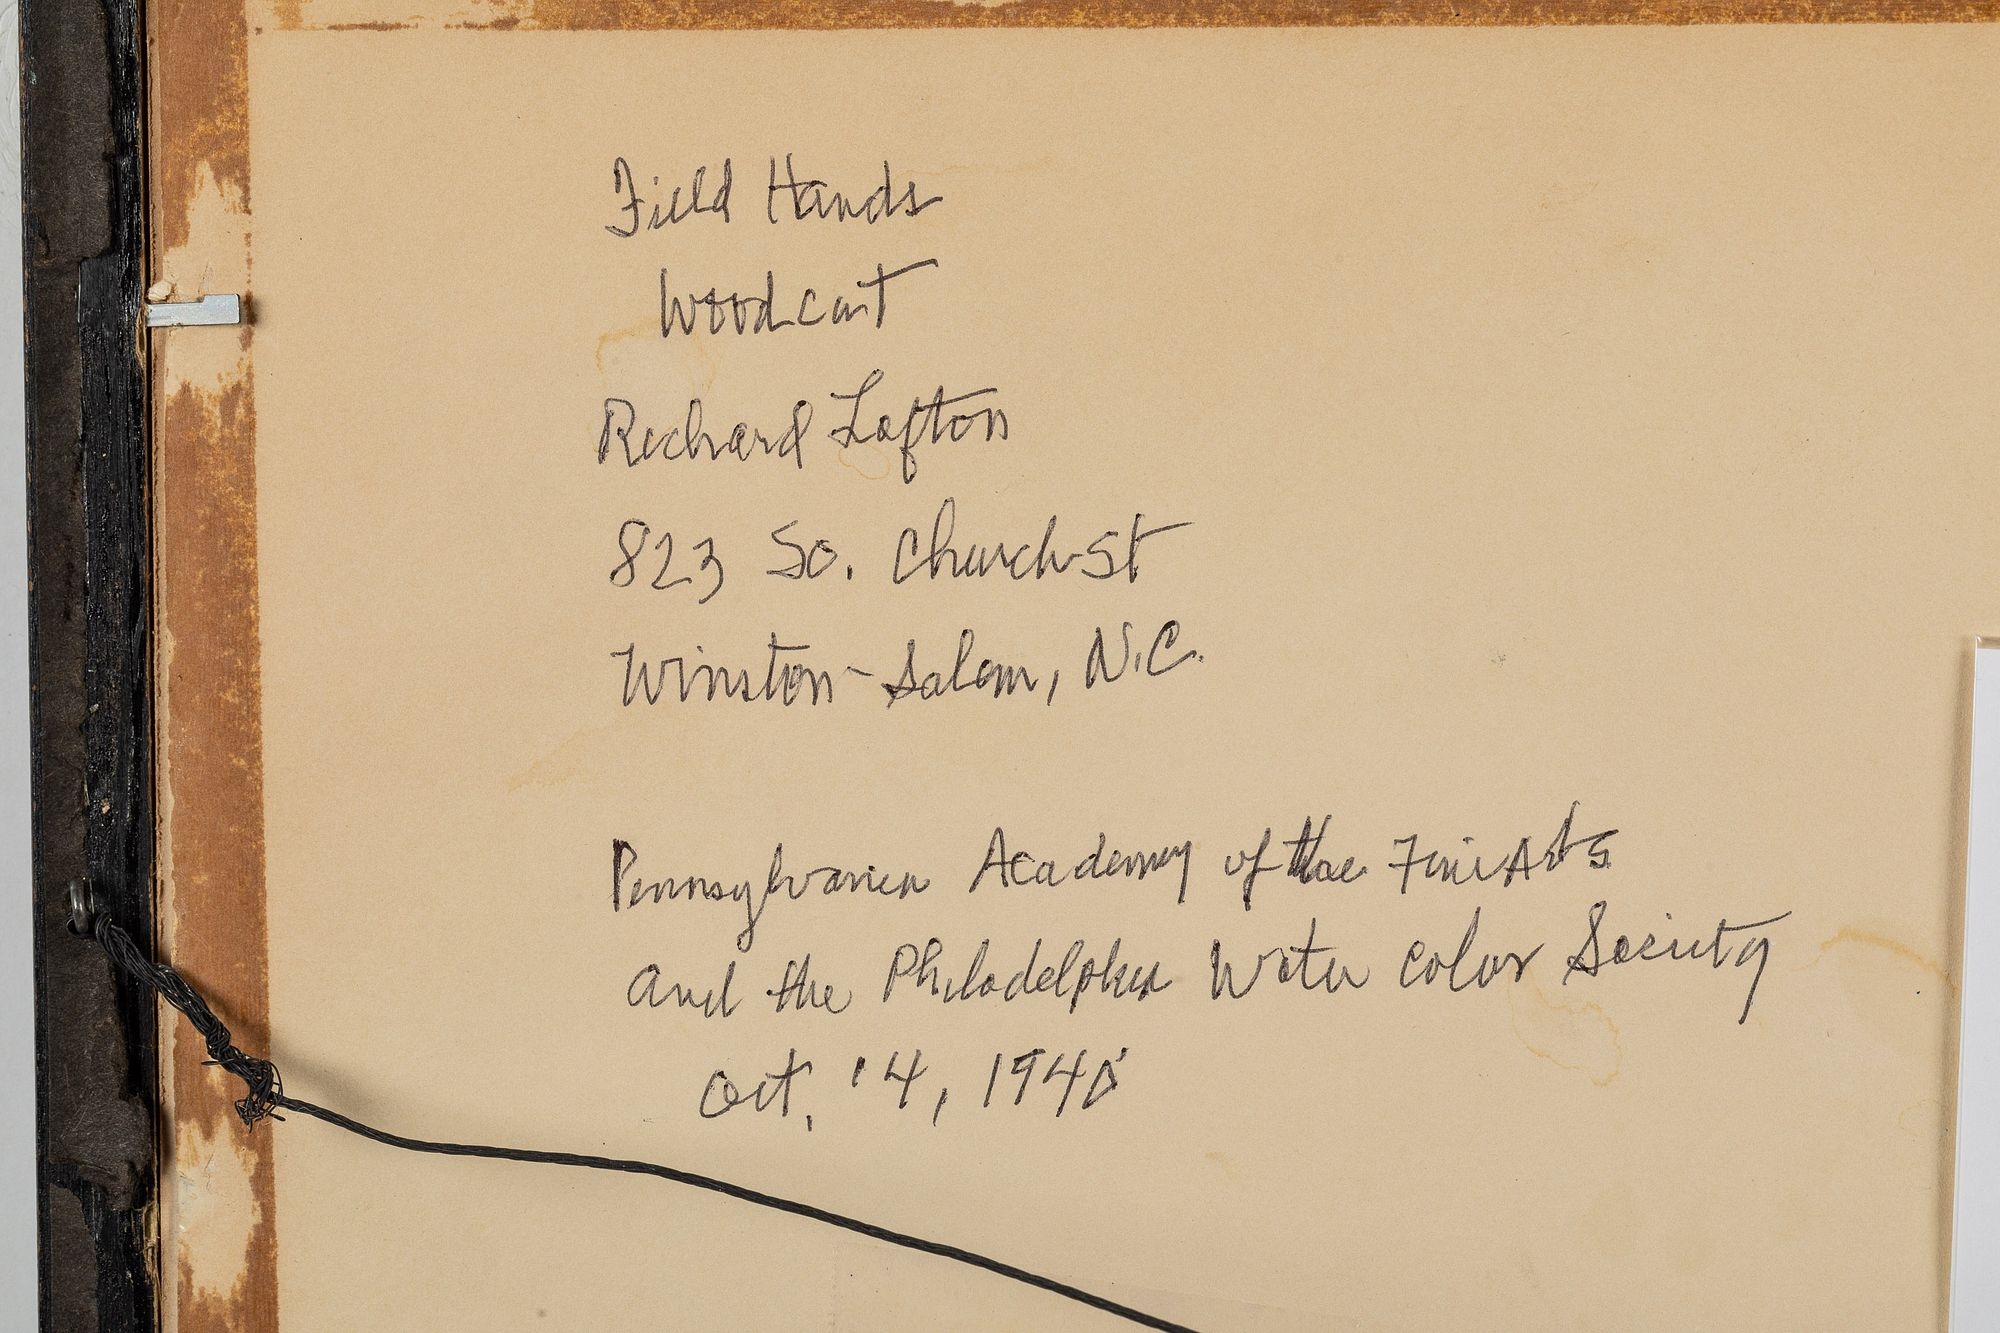 Field Hands
Woodcut
Richard Lofton
823 So. Church St
Winston-Salem, N.C.
Pennsylvania Academy of the Fine Arts
and the Philadelphia Water Color Society
Oct. 14,